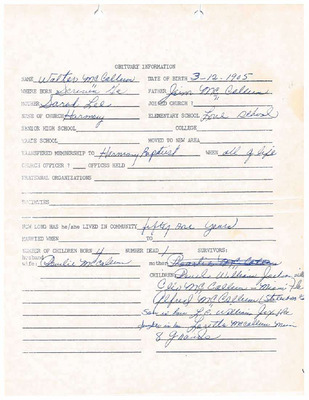 OBITUARY INFORMATION
NAME Walter McCallum DATE OF BIRTH 3-12-1905
WHERE BORN Screven Ga FATHER Jim McCallum
MOTHER Sarah Lee JOINED CHURCH
NAME OF CHURCH Harmony ELEMENTARY SCHOOL Love School
SENIOR HIGH SCHOOL COLLEGE
VOCATIONAL GRADE MOVED TO NEW AREA
TRANSFERED MEMBERSHIP TO Harmony Baptist WHEN all of life
CHURCH OFFICER OFFICES HELD
FRATERNAL ORGANIZATIONS
HOW LONG HAS he/she LIVED IN COMMUNITY fifty one years
MARRIED WHEN TO
NUMBER OF CHILDREN BORN 4 NUMBER DEAD 1 SURVIVORS:
husband
wife: McCallum mother
CHILDREN William
McCallum Miami Fla
Alfred McCallum
Son in law L.C. William Jax Fla
Loretta McCallum
8 Grands